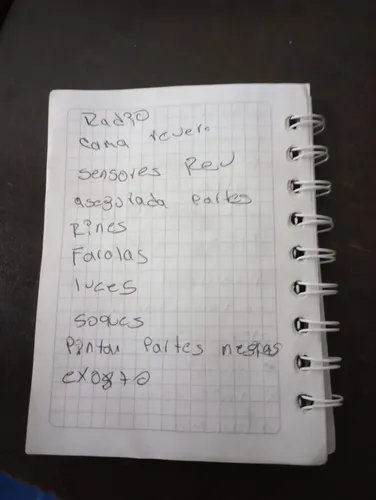 Radio
cama revers
sensores Rev
asegurada partes
Rines
Farolas
luces
soques
Pintar Partes negras
exosto